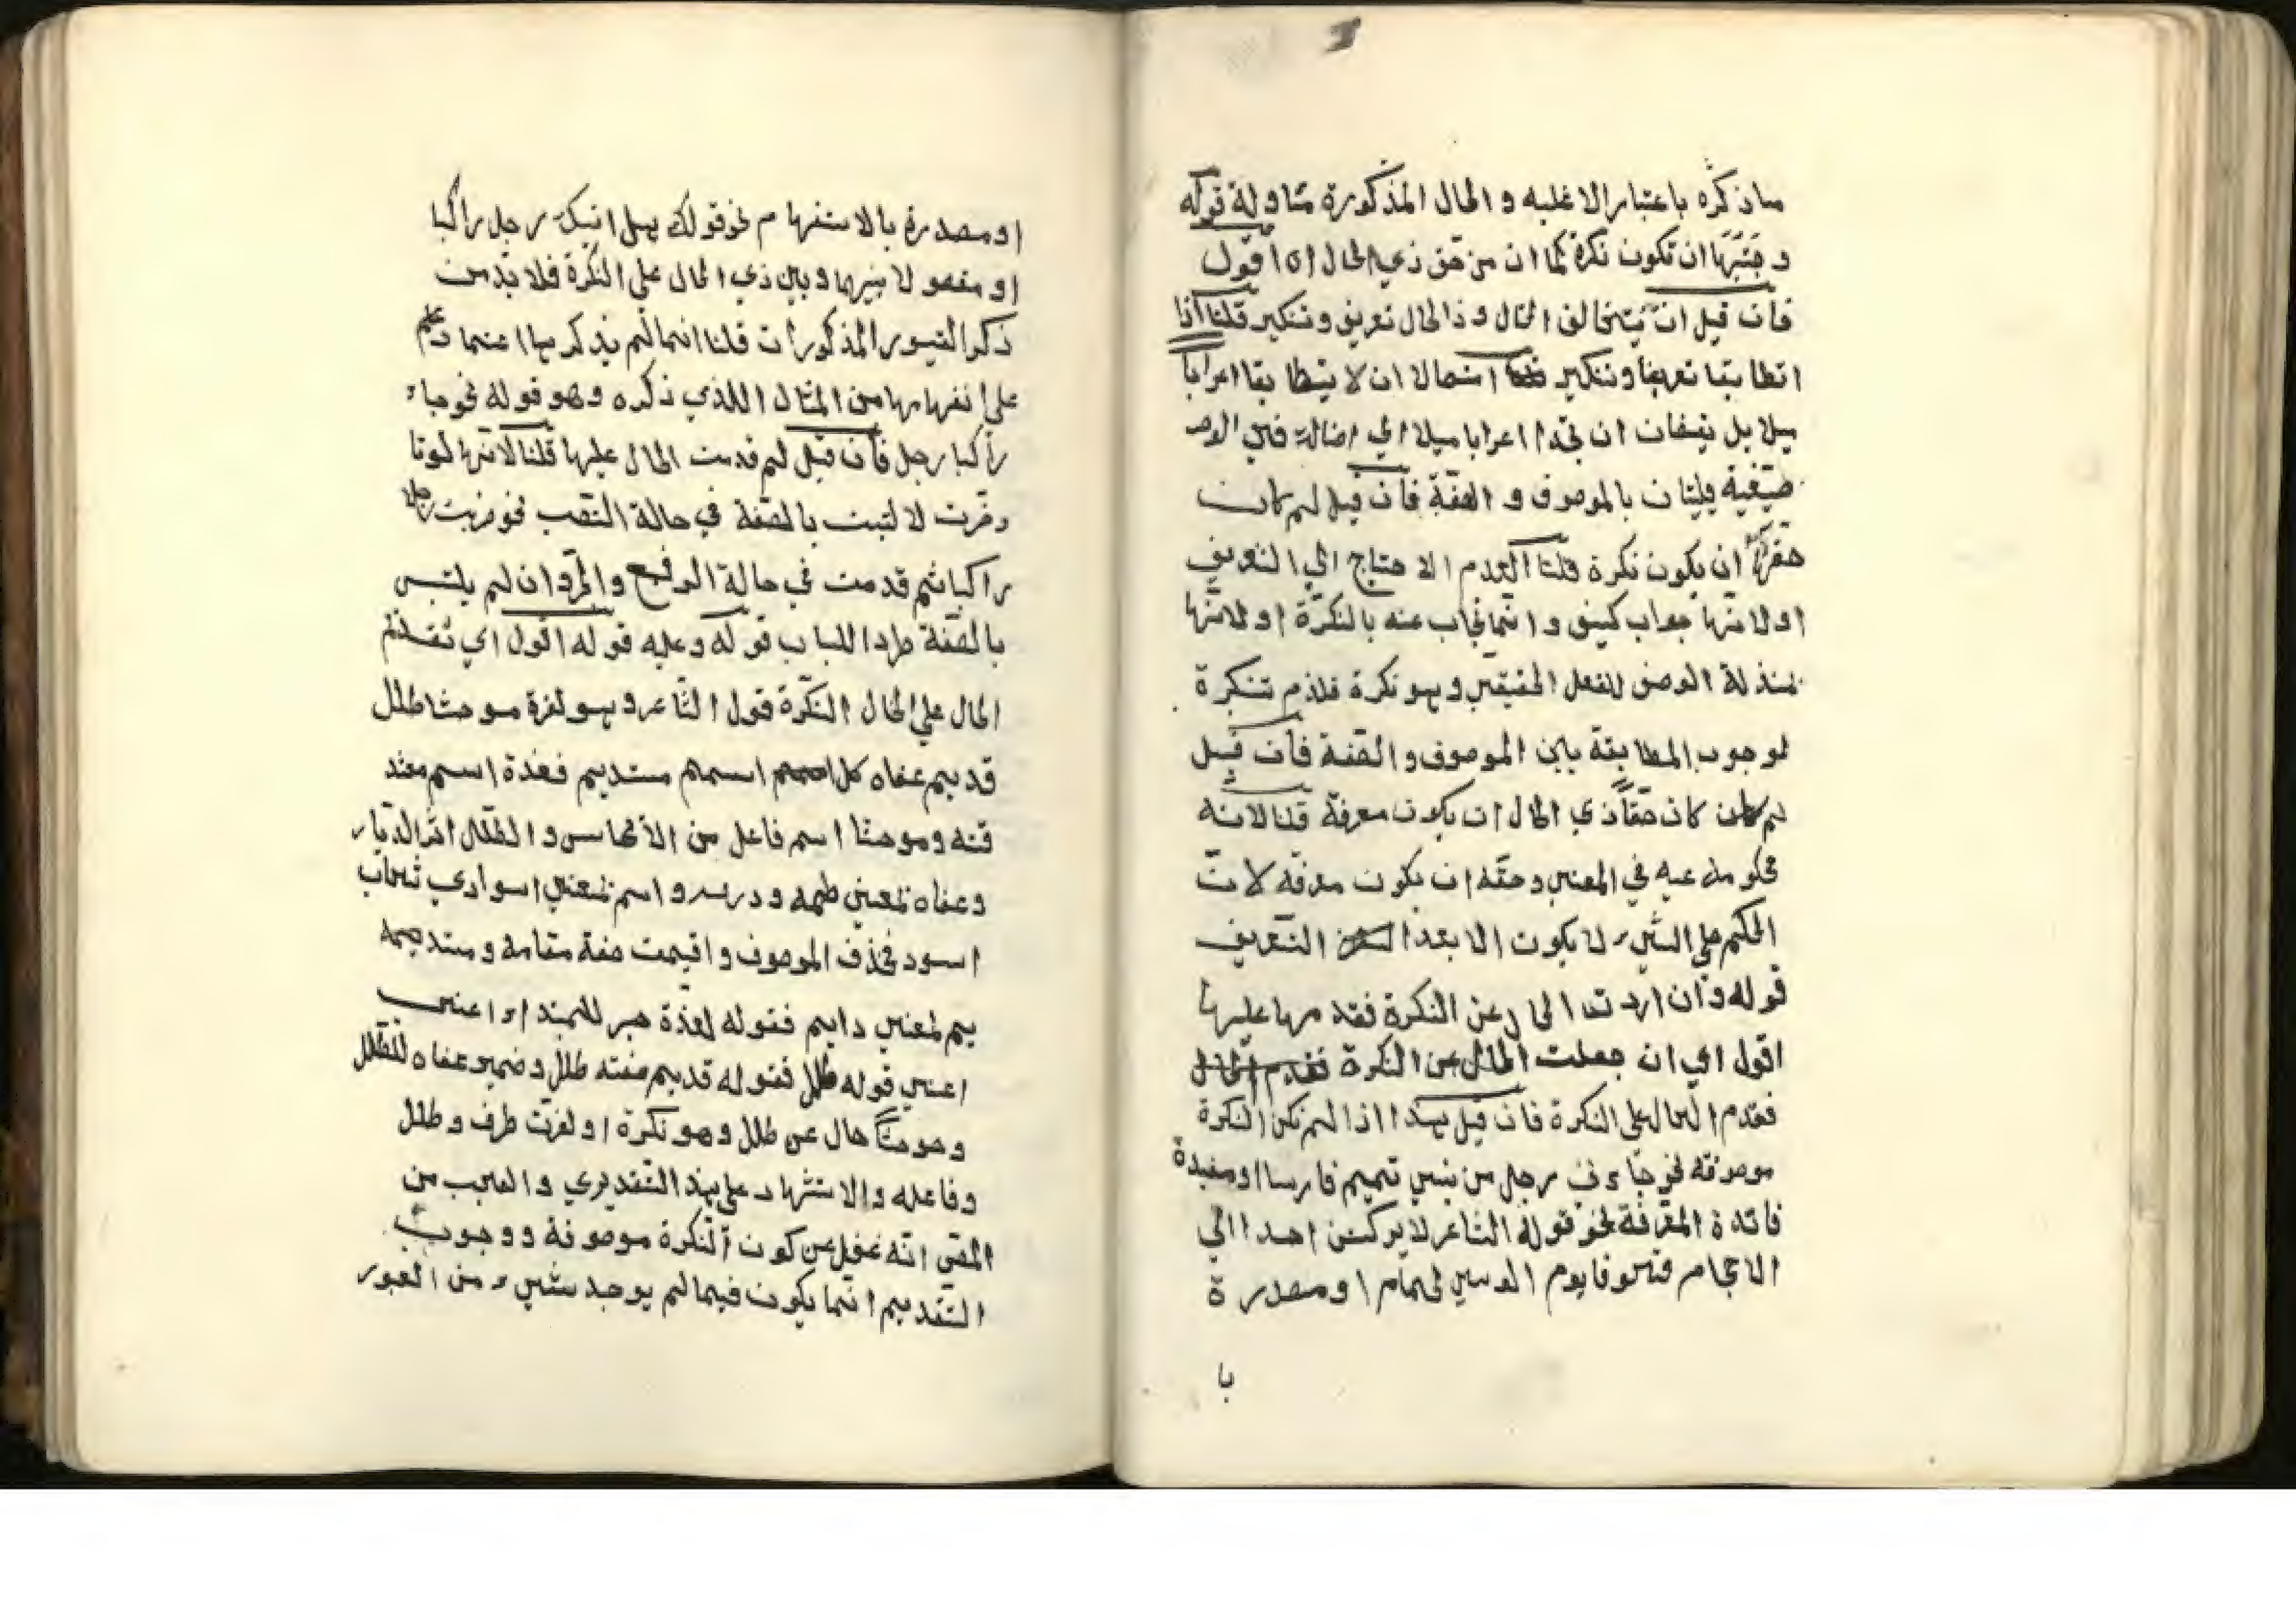 ما ذكره باعتبار الاغلبه و الحال المذكورة متاولة قوله
و ان تكون نكرة كما ان من حق ذي الحال ان اقول
فان قيل ان يتخالف الحال و ذا الحال تعريف وتنكير قلنا اذا
انطابقا تعريفا وتنكير ان لا يتطابقا اعرابا
ميلا بل يتفقان ان اعرابا ميلا الي
بالموصوف و الصفة فان قيل لم كان
حقها ان يكون نكرة قلنا لعدم الاحتاج الي التعريف
اولانها جواب كيف و انما يجاب عنه بالنكرة اولانها
بمنذلة الوصف للفعل الحقيقي وهو نكرة فلذم تنكرة
لوجوب المطابقة باين الموصوف و الصفة فان قيل
لم كان حق ذي الحال ان يكون معرفة قلنا لانه
محكومه عيه في المعني وحقه ان يكون معرفه لان
الحكم علي الشيء لا يكون الا بعد التعريف
قوله وان اردت الحال عن النكرة فقدمها عليها
اقول اي ان جعلت الحال عن النكرة فقدم الحال
فقدم الحال علي النكرة فان قيل هذا اذا لم تكن النكرة
موصوفه نحو جاءني رجل من بني تميم فارسا او مفيدة
فائدة المعرفة نحو قوله الشاعر لا يركنن احدا الي
الاحجام يوم الوغي لحمام او مصدرة
با
او مصدرة بالاستفهام نحو قولك هل اتيك رجل راكبا
او مفعولا بينها و بين ذي الحال علي النكرة فلا بد من
ذكر القيور المذكورات قلنا انما لم يذكرها اعتمادا
علي انفهامها من المثال اللذي ذكره وهو قوله نحو جاء
راكبا رجل فان قيل لم قدمت الحال عليها قلنا لانها لوتا
خرت لالتبت بالصفة في حالة النصب نحو ضربت رجلا
راكبا ثم قدمت في حالة الرفع والجر وان لم يلتبس
بالصفة طردا للباب قوله وعليه قوله اقول اي تقدم
الحال علي الحال النكرة قول الشاعر و هو لعزة موحشا طلل
قديم عفاه كل اسمهم مستديم فعذة اسم معشو
قته وموحشا اسم فاعل من الا و الطلل اثر الديار
وعفاه بمعني طمه ودرسه و اسم بمعني اسوداي سحاب
اسود فحذف الموصوف و اقيمت صفة مقامه ومستديمه
يم بمعني دايم فقوله لعذة خبر للمبتداء اعني
اعني قوله طلل فقوله قديم صفته طلل وضمير عفاه للطلل
وموحشا حال عن طلل وهو نكرة او لعزت ظرف و طلل
وفاعله والاستشهاد علي هذ التقديري و العجب من
المص انه غفل عن كون النكرة موصوفة ووجوب
التقديم انما يكون فيما لم يوجد شيء من القيور